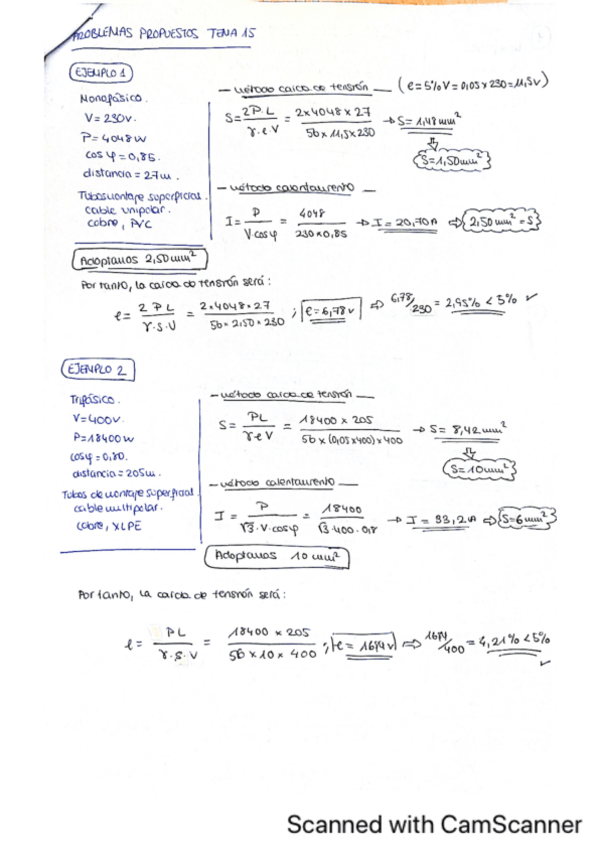 PROBLEMAS PROPUESTOS TEMA 15
EJEMPLO 1
Monofásico.
V = 230v.
P = 4048 W
cos φ = 0,85.
distancia = 27m.
Tubos montaje superficial.
cable unipolar.
cobre, PVC
— método caída de tensión — (e = 5% V = 0,05 x 230 = 11,5 v)
S = 2 P·L / γ·e·V = 2 x 4048 x 27 / 56 x 11,5 x 230 → S = 1,48 mm²
S = 1,50 mm²
— método calentamiento —
I = P / V·cos φ = 4048 / 230 x 0,85 → I = 20,70 A ⇒ 2,50 mm² = S
Adoptamos 2,50 mm²
Por tanto, la caída de tensión será:
e = 2 PL / γ·S·V = 2 x 4048 x 27 / 56 x 2,50 x 230 ; e = 6,78 v ⇒ 6,78/230 = 2,95% < 5% ✓
EJEMPLO 2
Trifásico.
V = 400v.
P = 18400 w
cos φ = 0,80.
distancia = 205 m.
Tubos de montaje superficial.
cable multipolar.
cobre, XLPE
— método caída de tensión —
S = PL / γ e V = 18400 x 205 / 56 x (0,05 x 400) x 400 → S = 8,42 mm²
S = 10 mm²
— método calentamiento —
I = P / √3·V·cos φ = 18400 / √3·400·0,8 → I = 33,2 A ⇒ S = 6 mm²
Adoptamos 10 mm²
Por tanto, la caída de tensión será:
e = PL / γ·S·V = 18400 x 205 / 56 x 10 x 400 ; e = 16,84 v ⇒ 16,84/400 = 4,21% < 5%
✓
Scanned with CamScanner